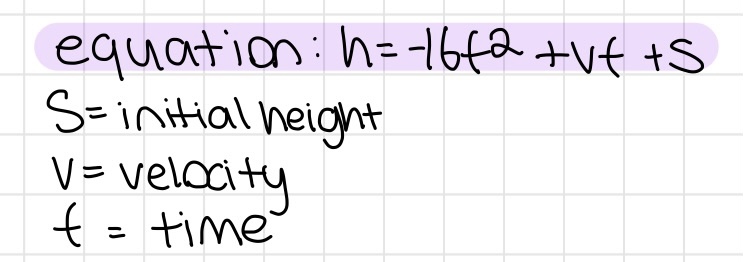 equation: h=-16t2 +vt +s
S= initial height
v= velocity
t = time